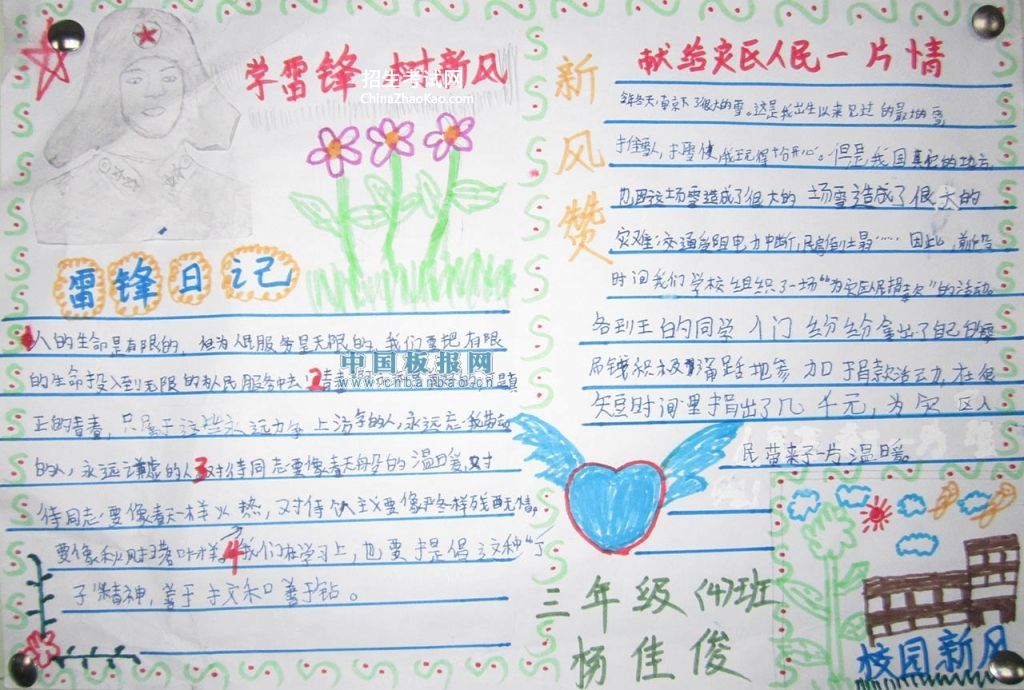 学雷锋 树新风
招生考试网
ChinaZhaoKao.com
雷锋日记
人的生命是有限的，但为人民服务是无限的，我们要把有限
的生命投入到无限的为人民服务中去 2 青春
中国板报网
www.cnbanbao.cn
正的青春，只属于这些永远力争上游的人，永远忘我劳动
的人，永远谦虚的人 3 对待同志要像春天般的温暖，对
待 要像 一样火热，对待个人主义要像严冬一样残酷无情，
要像秋风扫落叶一样。4 我们在学习上，也要提倡这种“丁
子”精神，善于 和善于钻。
新风赞
献给灾区人民一片情
今年冬天，南京下了很大的雪。这是我出生以来见过的最大的雪，
堆雪人，打雪仗，我玩得十分开心。但是我国其它的地方，
也因这场雪造成了很大的 场雪造成了很大的
灾难：交通受阻电力中断，民房倒塌……因此，前些
时间我们学校组织了一场“为灾区人民捐款”的活动。
各到王的同学们纷纷拿出了自己的零
用钱积极踊跃地参加捐款活动，在很
短时间里捐出了几千元，为灾区人
民带来了一片温暖。
三年级（4）班
杨佳俊
校园新风